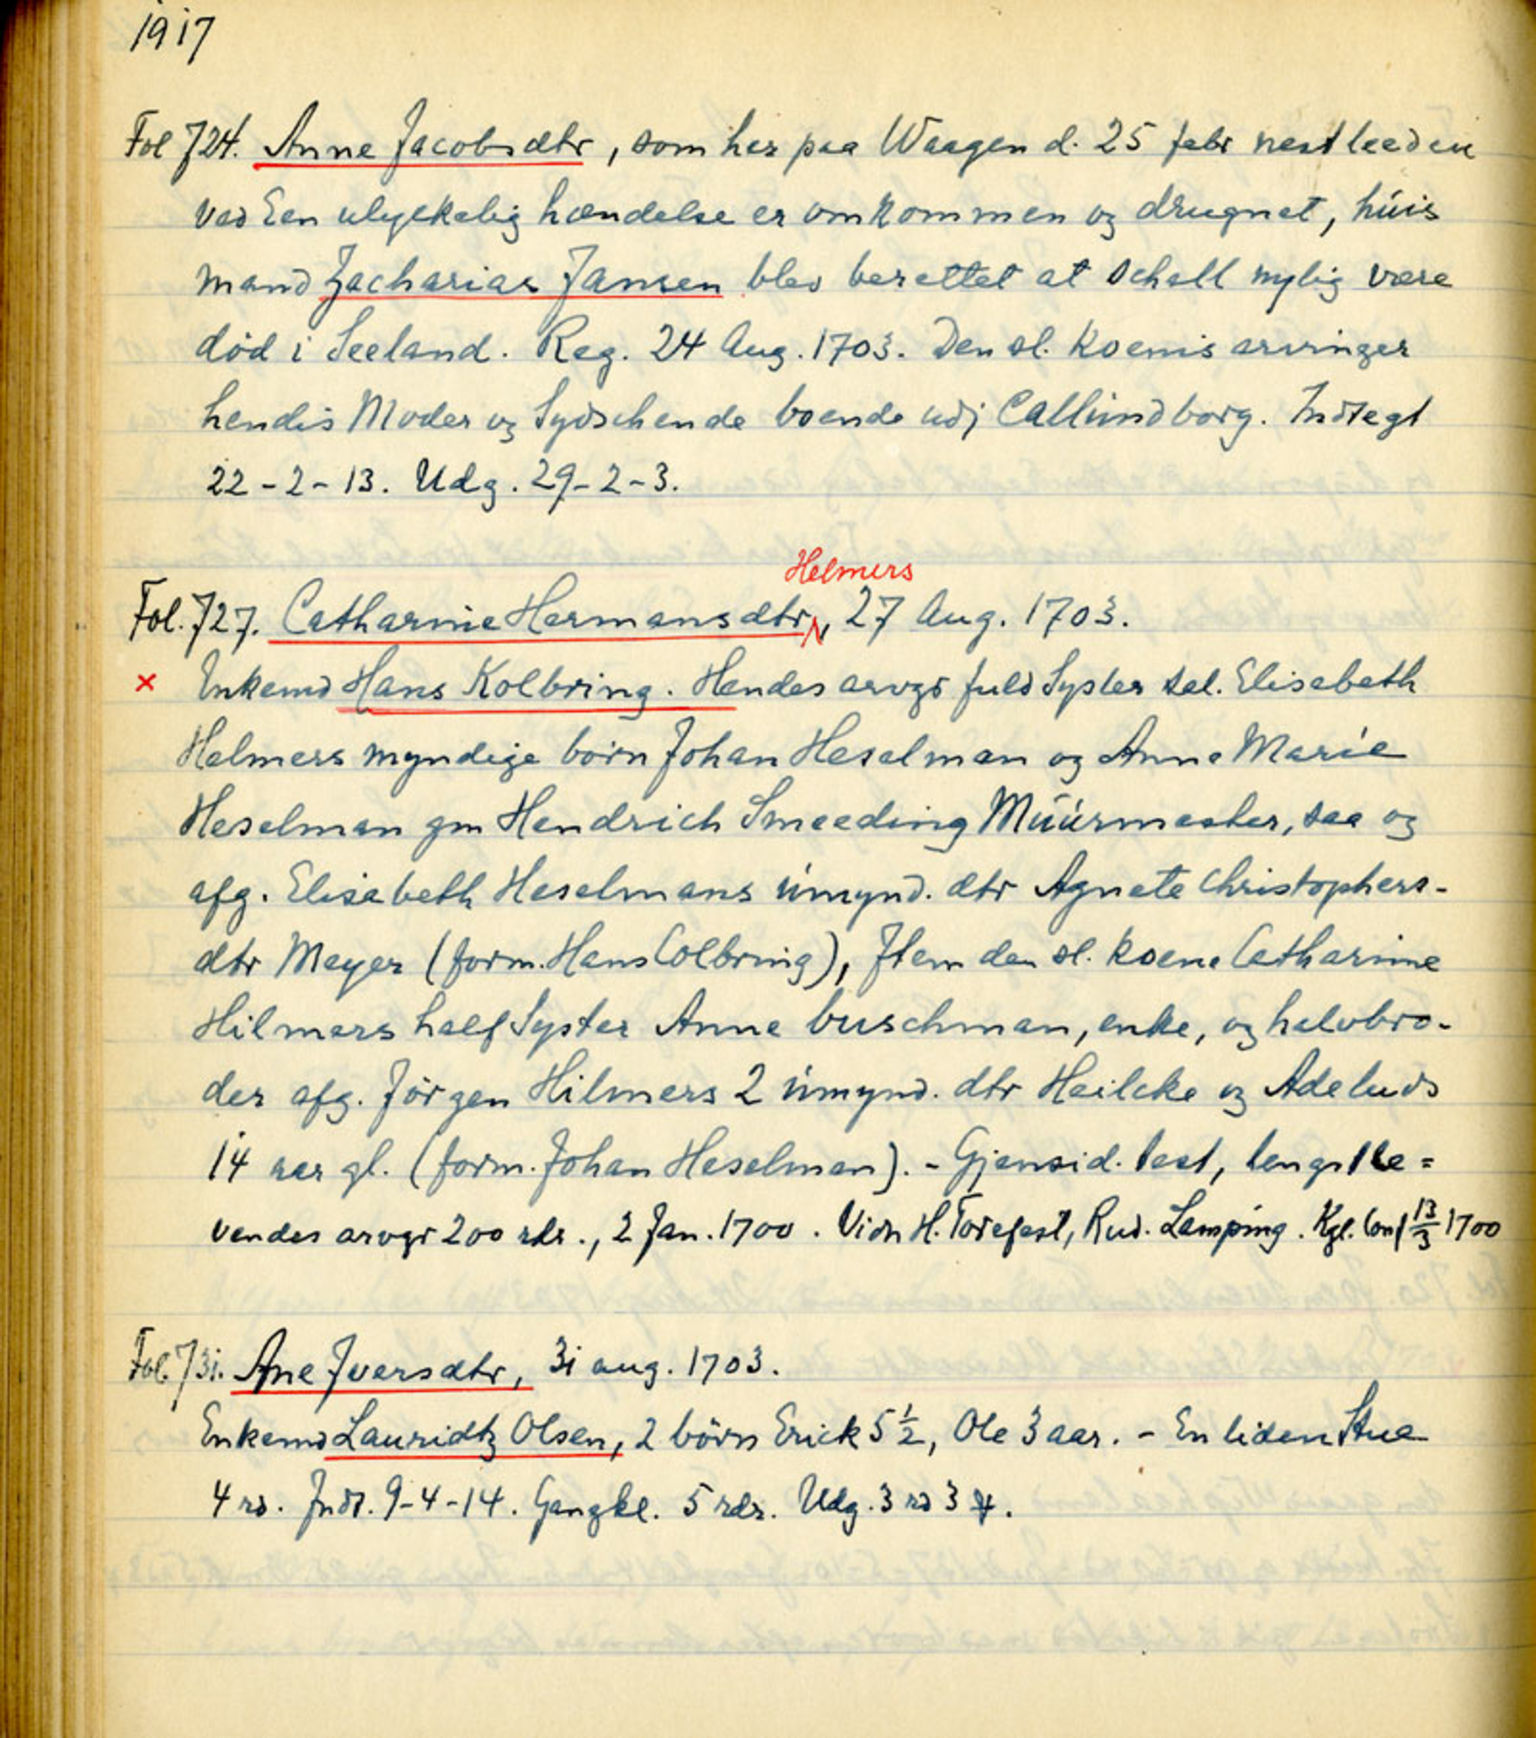 1917
Fol 724. Anne Jacobsdtr, som her paa Waagen d. 25 febr nestleeden
ved Een ulyckelig hændelse er omkommen og drugnet, húis
mand Zacharias Jansen blev berettet at schall nylig være
död i Seeland. Reg. 24 Aug. 1703. Den sl. Koenis arvinger
hendis Moder og Sydschende boende udj Callúndborg. Indtegt
22-2-13. Udg. 29-2-3.
Helmers
Fol. 727. Catharine Hermansdtr, 27 Aug. 1703.
x Enkemd Hans Kolbring. Hendes arvgr fuld Syster sal. Elisabeth
Helmers myndige börn Johan Heselman og Anne Marie
Heselman gm Hendrich Smeeding Múúrmester, saa og
afg. Elisabeth Heselmans úmynd. dtr Agnete Christophers-
dtr Meyer (form. Hans Colbring), Item den sl. koene Catharine
Hilmers half Syster Anne buschman, enke, og halvbro-
der afg. Jörgen Hilmers 2 úmynd. dtr Heilcke og Adeluds
14 aar gl. (form. Johan Heselman). - Gjensid. test, lengstle=
vendes arvgr 200 rdr., 2 Jan. 1700. Vidn H. Torefest, Rud. Lamping. Kgl. Conf 13/3 1700
Fol. 731. Ane Iversdtr, 31 aug. 1703.
Enkemd Lauridtz Olsen, 2 börn Erick 5 1/2, Ole 3 aar. - En liden Stue
4 rd. Indt. 9-4-14. Gangkl. 5 rdr. Udg. 3 rd 3